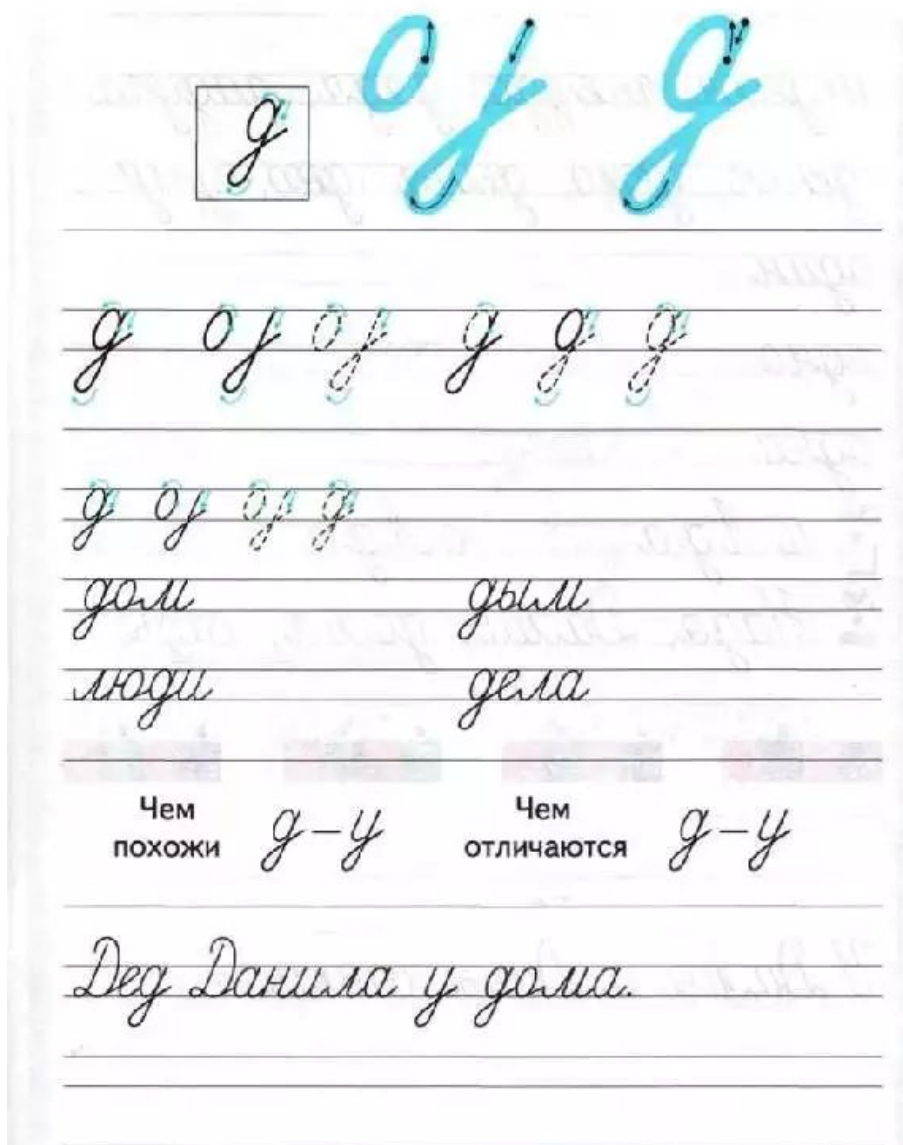 д
д д
д д д д
д д
дом дым
люди дела
Чем похожи д – у Чем отличаются д – у
Дед Данила у дома.